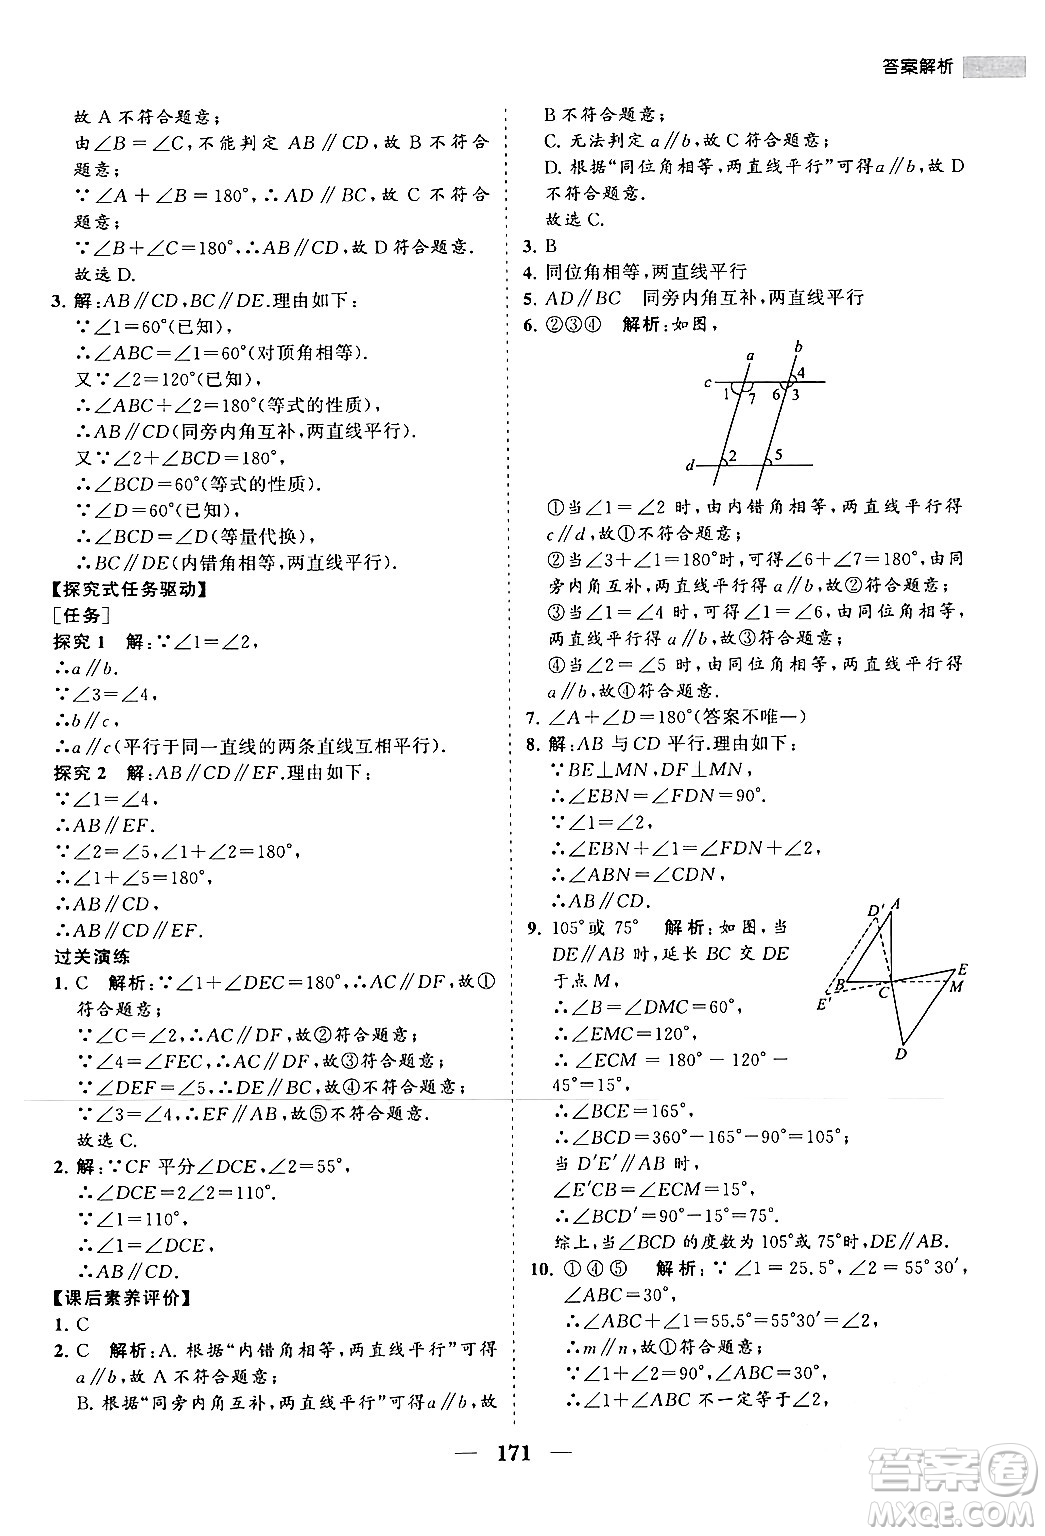 答案解析
故 A 不符合题意;
由∠B=∠C,不能判定 AB∥CD,故 B 不符合
题意;
∵∠A+∠B=180°,∴AD∥BC,故 C 不符合
题意;
∵∠B+∠C=180°,∴AB∥CD,故 D 符合题意.
故选 D.
3. 解:AB∥CD,BC∥DE.理由如下:
∵∠1=60°(已知),
∴∠ABC=∠1=60°(对顶角相等).
又∵∠2=120°(已知),
∴∠ABC+∠2=180°(等式的性质),
∴AB∥CD(同旁内角互补,两直线平行).
又∵∠2+∠BCD=180°,
∴∠BCD=60°(等式的性质).
∵∠D=60°(已知),
∴∠BCD=∠D(等量代换),
∴BC∥DE(内错角相等,两直线平行).
【探究式任务驱动】
[任务]
探究 1 解:∵∠1=∠2,
∴a∥b.
∵∠3=∠4,
∴b∥c,
∴a∥c(平行于同一直线的两条直线互相平行).
探究 2 解:AB∥CD∥EF.理由如下:
∵∠1=∠4,
∴AB∥EF.
∵∠2=∠5,∠1+∠2=180°,
∴∠1+∠5=180°,
∴AB∥CD,
∴AB∥CD∥EF.
过关演练
1. C 解析:∵∠1+∠DEC=180°,∴AC∥DF,故①
符合题意;
∵∠C=∠2,∴AC∥DF,故②符合题意;
∵∠4=∠FEC,∴AC∥DF,故③符合题意;
∵∠DEF=∠5,∴AB∥DE,故④不符合题意;
∵∠C=∠2,∴EF∥AB,故⑤不符合题意.
故选 C.
2. 解:∵CF 平分∠DCE,∠2=55°,
∴∠DCE=2∠2=110°.
∵∠1=110°,
∴∠1=∠DCE,
∴AB∥CD.
【课后素养评价】
1. C
2. C 解析:A. 根据“内错角相等,两直线平行”可得
a∥b,故 A 不符合题意;
B. 根据“同旁内角互补,两直线平行”可得a∥b,故
B 不符合题意;
C. 无法判定 a∥b,故 C 符合题意;
D. 根据“同位角相等,两直线平行”可得a∥b,故 D
不符合题意.
故选 C.
3. B
4. 同位角相等,两直线平行
5. AD∥BC 同旁内角互补,两直线平行
6. ②③④ 解析:如图,
a b
c 1 7 6 3 4
d 2 5
①当∠1=∠2 时,由内错角相等,两直线平行得
c∥d,故①不符合题意;
②当∠3+∠1=180°时,可得∠6+∠7=180°,由同
旁内角互补,两直线平行得 a∥b,故②符合题意;
③当∠1=∠4 时,可得∠1=∠6,由同位角相等,
两直线平行得 a∥b,故③符合题意;
④当∠2=∠5 时,由同位角相等,两直线平行得
a∥b,故④符合题意.
7. ∠A+∠D=180°(答案不唯一)
8. 解:AB 与 CD 平行.理由如下:
∵BE⊥MN,DF⊥MN,
∴∠EBN=∠FDN=90°.
∵∠1=∠2,
∴∠EBN+∠1=∠FDN+∠2,
∴∠ABN=∠CDN,
∴AB∥CD.
9. 105°或 75° 解析:如图,当
DE∥AB 时,延长 BC 交 DE
于点 M,
∴∠B=∠DMC=60°,
∴∠EMC=120°,
∴∠ECM = 180° − 120° −
45°=15°,
∴∠BCE=165°,
∴∠BCD=360°−165°−90°=105°;
当 D′E′∥AB 时,
∠E′CB=∠ECM=15°,
∴∠BCD′=90°−15°=75°.
综上,当∠BCD 的度数为 105°或 75°时,DE∥AB.
D′ A
B C E M
E′
D
10. ①④⑤ 解析:∵∠1=25.5°,∠2=55°30′,
∠ABC=30°,
∴∠ABC+∠1=55.5°=55°30′=∠2,
∴m∥n,故①符合题意;
∵∠1+∠2=90°,∠ABC=30°,
∴∠1+∠ABC 不一定等于∠2,
— 171 —
答案圈
MXQE.COM